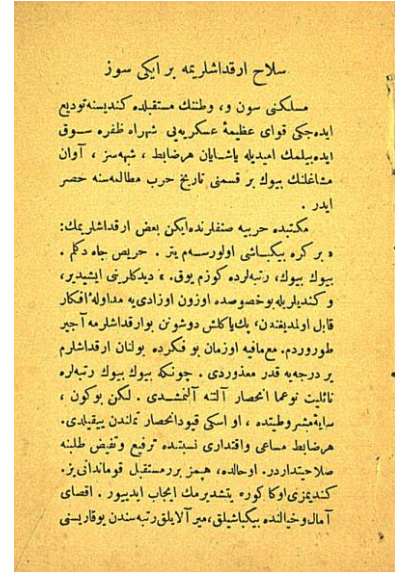 سلاح ارقداشلریمه بر ایکی سوز
مسلکنی سون و، وطننك مستقبلده کندیسنه تودیع
ایده‌جکی قوای عظیمۀ عسکریه‌یی شهراه ظفره ســوق
ایده‌بیلمك امیدیله یاشــایان هرضابط ، شبهه‌سز ، آوان
مشاغلنك بیوك بر قسمنی تاریخ حرب مطالعه‌سنه حصر
ایدر .
مکتبده حربیه صنفلرنده‌ایکن بعض ارقداشلریمك:
« بر کره بیکباشی اولورســه‌م یتر . حریص جاه دکلم .
بیوك بیوك، رتبه‌لرده کوزم یوق. » دیدکلرینی ایشیدیر،
و کندیلریله بو خصوصده اوزون اوزادی‌یه مداولۀ افکار
قابل اولمدیغندن، پك یاکلش دوشونن بو ارقداشلرمه آجیر
طوروردم. مع‌مافیه اوزمان بو فکرده بولنان ارقداشلرم
بر درجه‌یه قدر معذوردی . چونکه بیوك بیوك رتبه‌لره
نائلیت نوعما انحصار آلتنه آلنمشــدی . لکن بوکون ،
سایۀ مشروطیتده ، او اسکی قیود انحصار تملندن ییقیلدی.
هرضابط مساعی و اقتداری نسبتنده ترفیع و تفیض طلبنه
صلاحیتداردر. اوحالده، هپمز بررمستقبل قوماندانی‌یز.
کندیمزی اوکا کوره یتشدیرمك ایجاب ایدییور . اقصای
آمال و خیالنده بیکباشیلق، میر آلایلق رتبه‌سندن یوقاریسنی